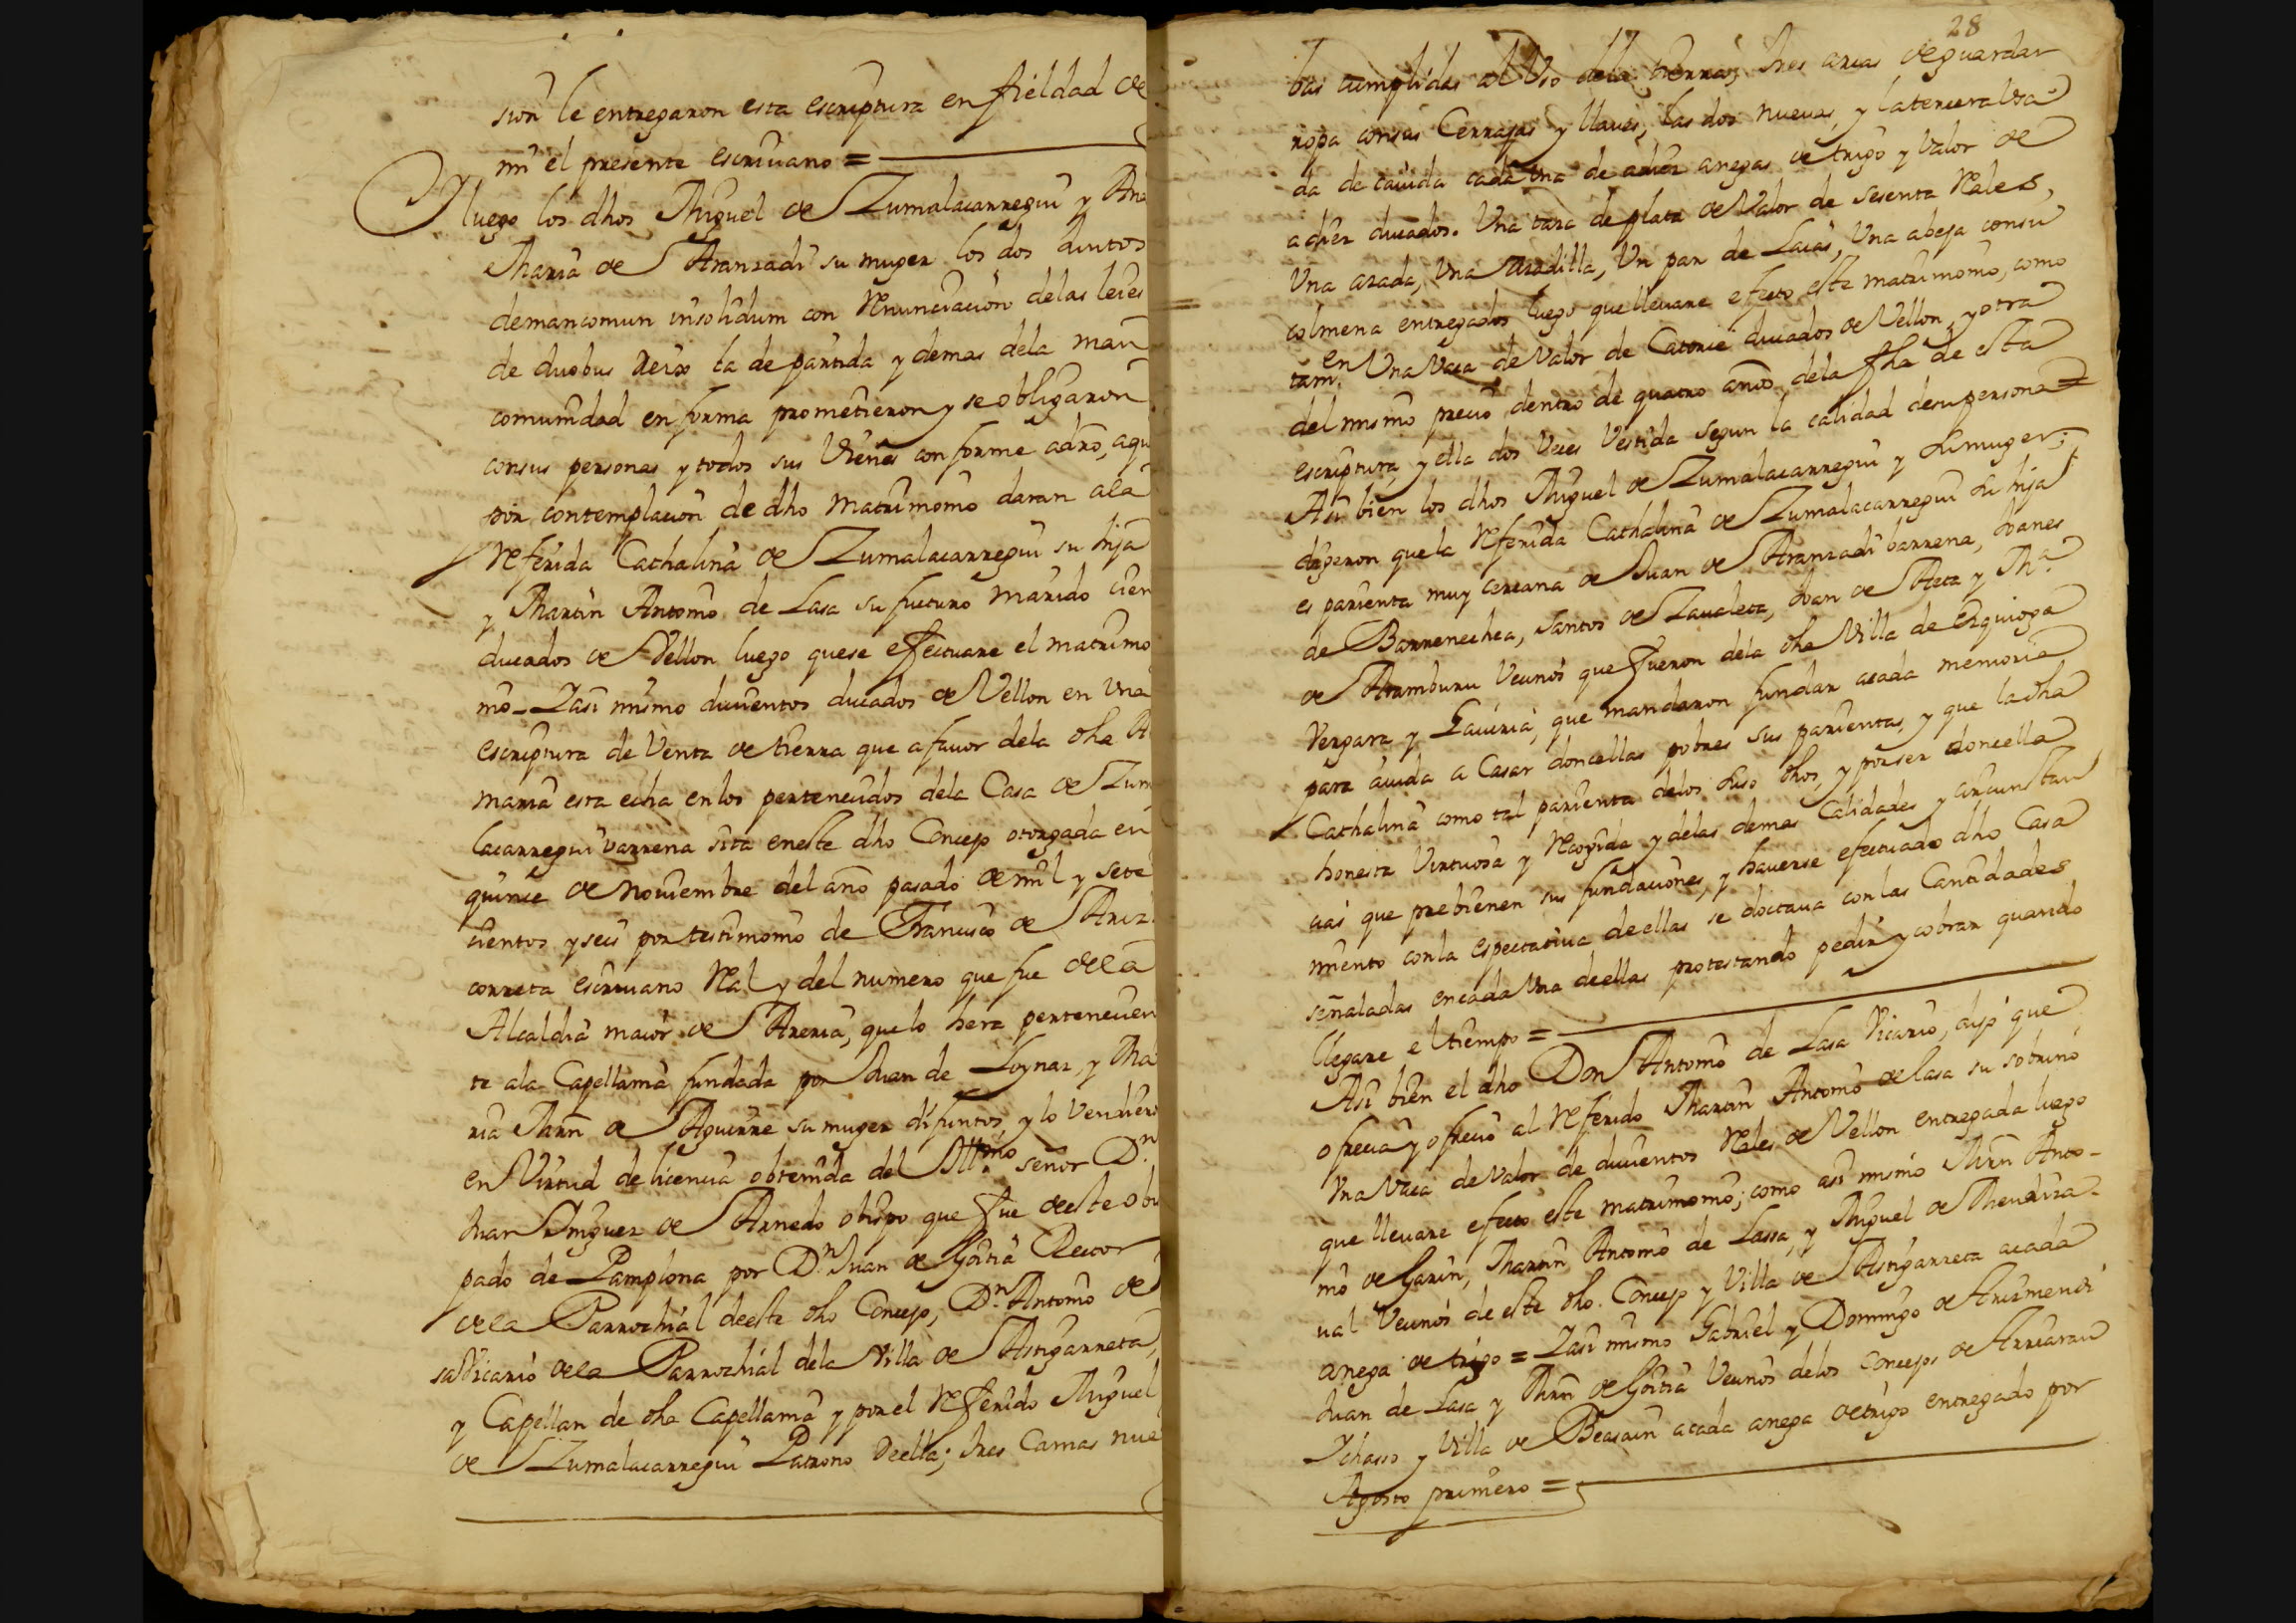 sion le entregaron esta escriptura en fieldad de
mi el presente escriuano =
Y luego los dhos Miguel de Zumalacarregui y Ana
Maria de Aranzadi su muger los dos Juntos
demancomun insolidum con Renunciacion delas leies
de duobus Reix la de partida y demas dela man
comunidad en forma prometieron y se obligaron
consus personas y todos sus Vienes conforme adro, aqu
por contemplacion de dho Matrimonio daran ala
Referida Cathalina de Zumalacarregui su hija
y Martin Antonio de Lasa su futuro marido cien
ducados de Vellon luego quese efectuare el matrimo
nio_Yasi mismo ducientos ducados de Vellon en Vna
escriptura de Venta de tierra que a fauor dela dha A
maria esta echa en los pertenecidos dela Casa de Zum
lacarregui varrena sita eneste dho Concejo otorgada en
quince de Nouiembre del año pasado de mil y sete
cientos y seis por testimonio de Francisco de Ariz
correta escriuano Real y del numero que fue dela
Alcaldia maior de Areria, que lo hera pertenecien
te ala Capellania fundada por Juan de Loynaz, y Ma
ria Martin de Aguirre su muger difuntos, y lo Vendiero
en Virtud de licencia obtenida del Illmo señor Dn
Juan Iñiguez de Arnedo obispo que fue deeste obis
pado de Pamplona por Dn Juan de Goitia Rector
dela Parrochial deeste dho Concejo, Dn Antonio de
sa Vicario dela Parrochial dela Villa de Astigarreta,
y Capellan de dha Capellania y por el Referido Miguel
de Zumalacarregui Patrono deella; tres Camas nue
28
bas cumplidas al Vso dela tierra; tres arcas de guardar
ropa consus Cerrajas y llaues, las dos nueuas, y latercera Vsa
da de cauida cada Vna de adiez anegas de trigo y Valor de
adiez ducados. Vna taza de plata de Valor de sesenta Reales,
Vna azada, Vna Azadilla, Vn par de Laias, Vna abeja consu
colmena entregados luego que lleuare efecto este matrimonio, como
tam.en Vna Vaca de Valor de Catorce ducados de Vellon, y otra
del mismo precio dentro de quatro años dela fha de esta
escriptura, y ella dos Veces Vestida segun la calidad desu persona =
Asi bien los dhos Miguel de Zumalacarregui y Su muger;
dijeron que la Referida Cathalina de Zumalacarregui su hija
es parienta muy cercana de Juan de Aranzadi barrena, Juanes
de Barrenechea, Santos de Zaualeta, Juan de Aeta y Ma
de Aramburu Vecinos que fueron dela dha Villa de Ezquioga
Vergara y Gauiria, que mandaron fundar acada memoria
para aiuda a Casar doncellas pobres sus parientas, y que la dha
Cathalina como tal parienta delos Suso dhos, y por ser doncella
honesta Virtuosa y Recogida y delas demas Calidades y circunstan
cias que prebienen sus fundaciones, y hauerse efectuado dho Casa
miento con la espectatiua deellas se doctaua con las Cantidades
señaladas en cada Vna deellas protestando pedir y cobrar quando
llegare el tiempo =
Asi bien el dho Don Antonio de Lasa Vicario, dijo que
ofrecia y ofrecio al Referido Martin Antonio de Lasa su sobrino
Vna Vaca de Valor de ducientos Reales de Vellon entregada luego
que lleuare efecto este matrimonio; como asi mismo Mrn Anto-
nio de Garin, Martin Antonio de Lassa, y Miguel de Mendiza-
ual Vecinos de este dho. Concejo y Villa de Astigarreta acada
anega de trigo = Yasi mismo Gabriel y Domingo de Arizmendi
Juan de Lasa y Mrn de Goitia Vecinos delos Concejos de Arriaran
Ychasso y Villa de Beasain acada anega de trigo entregado por
Agosto primero =